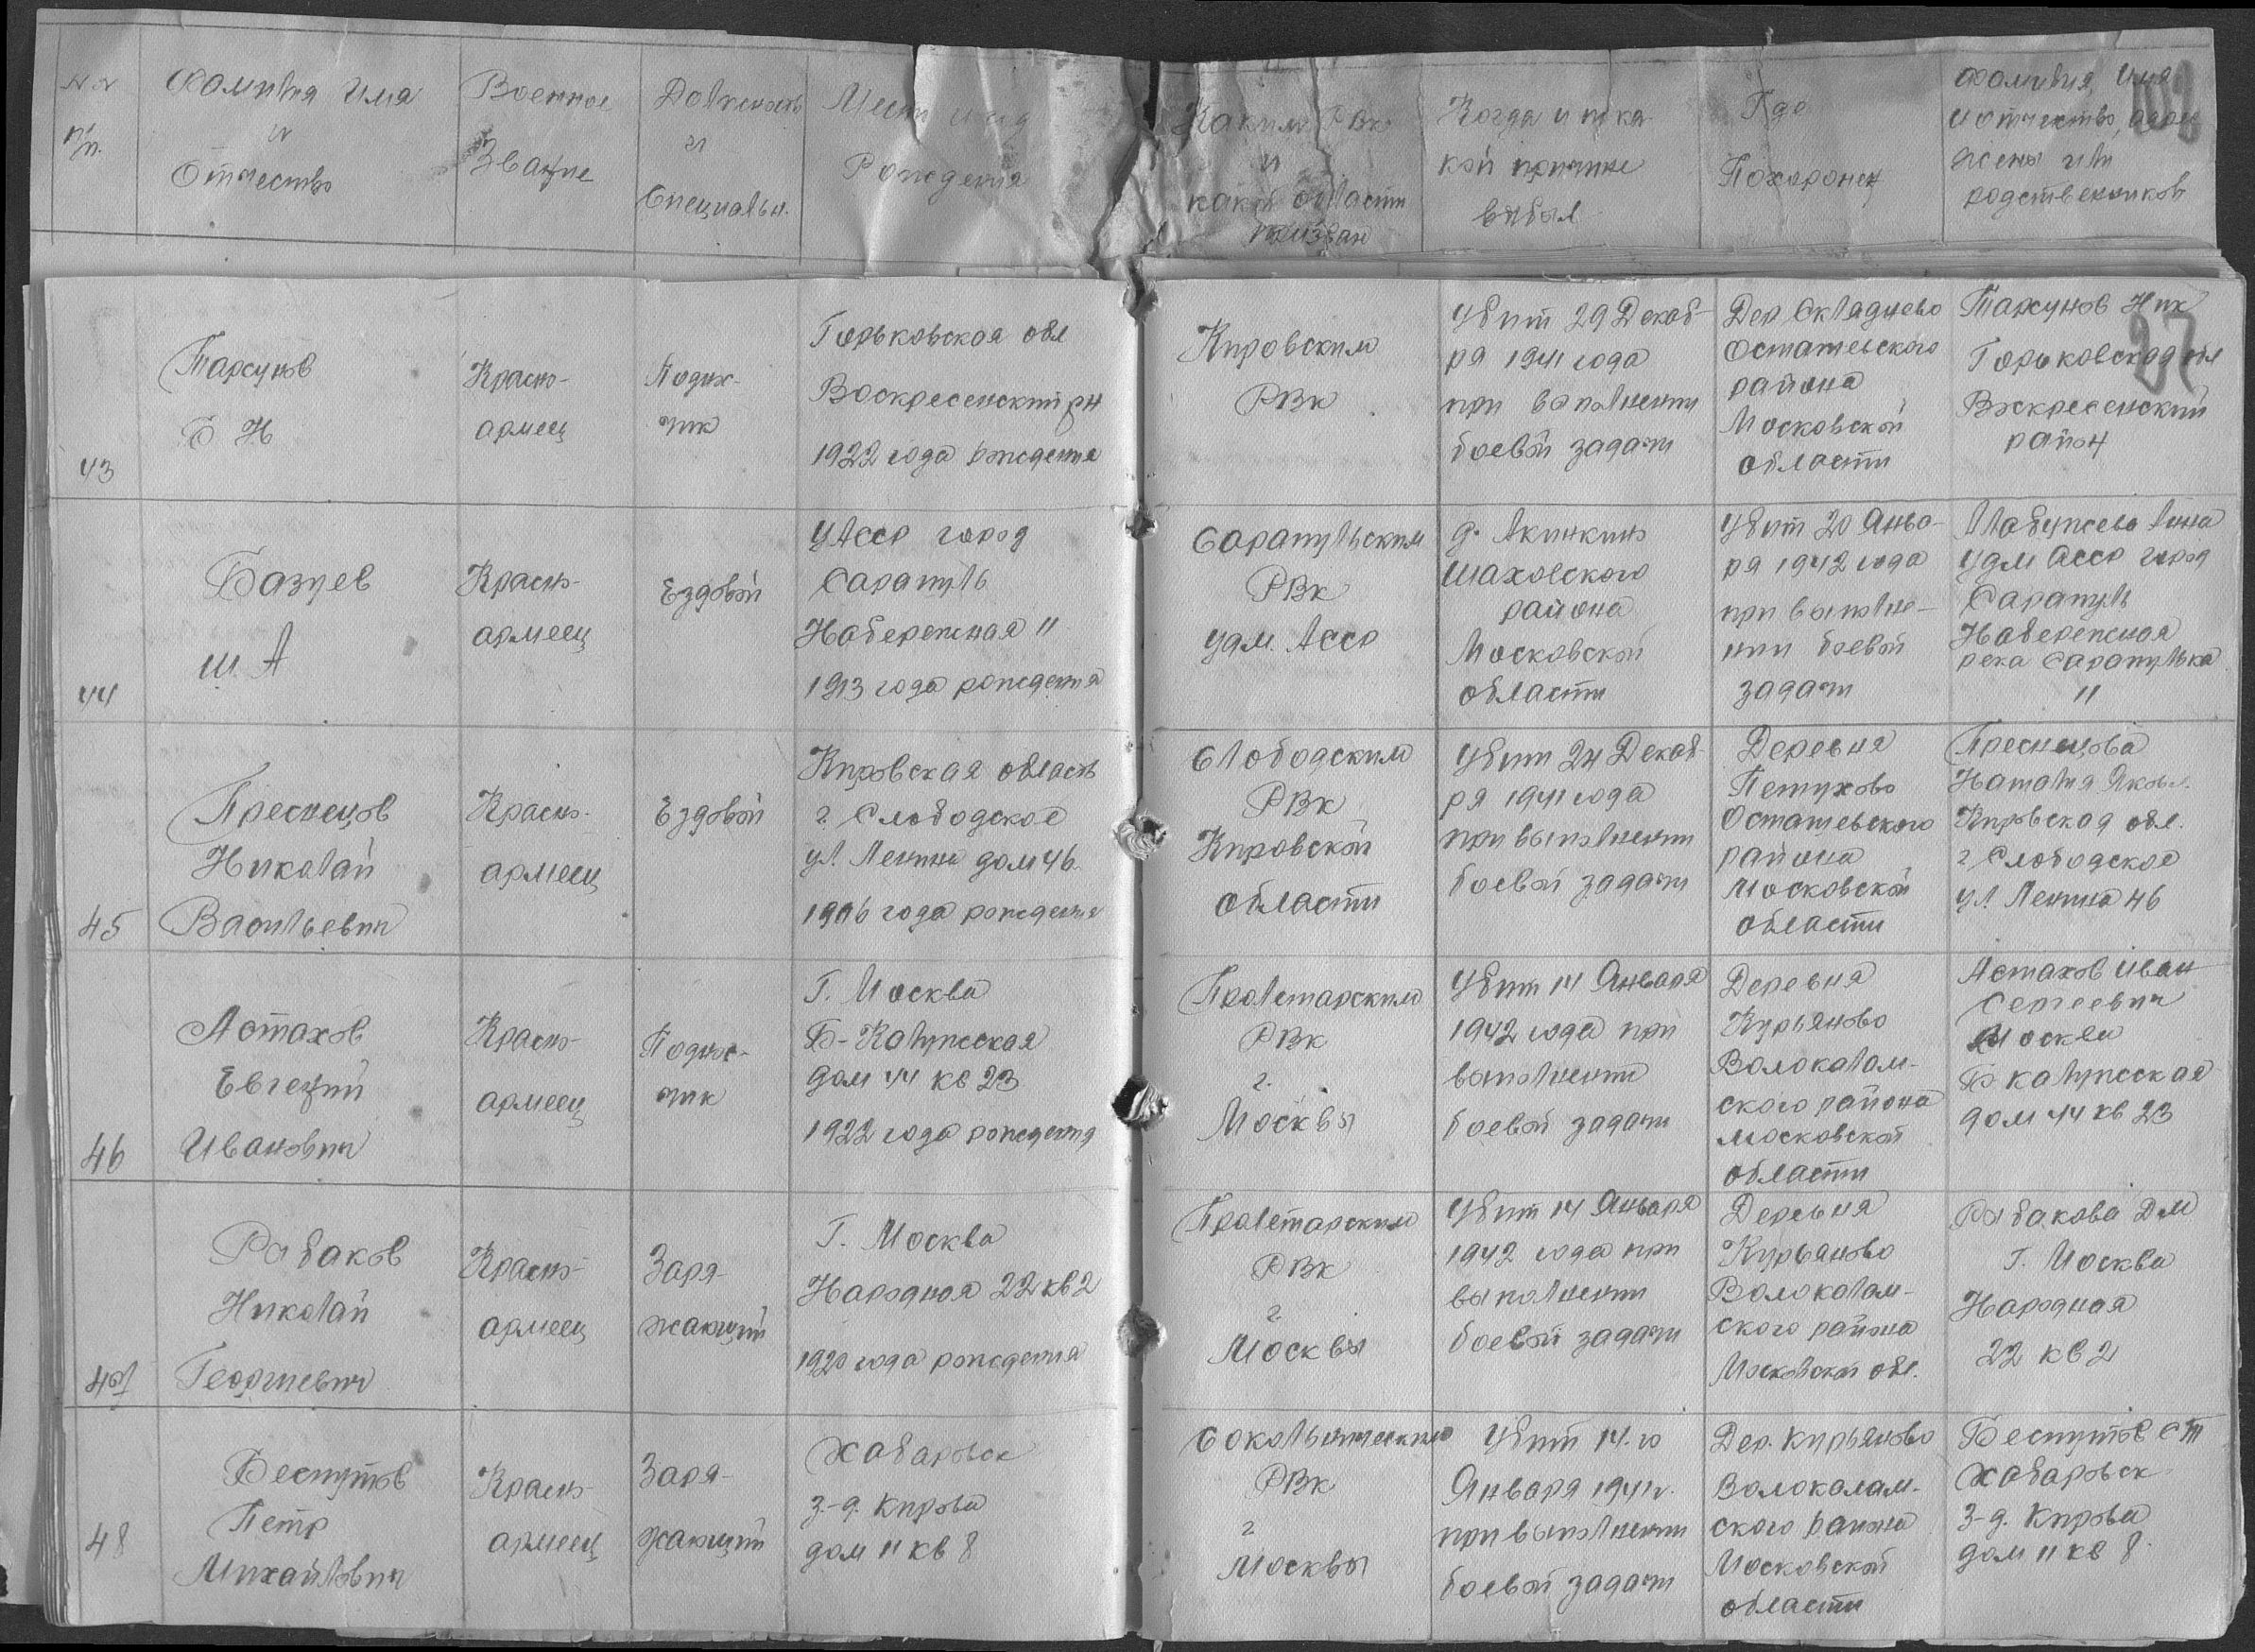 №№
п/п.
Фамилия Имя
и
Отчество
Военное
Звание
Должность
и
Специальн.
Мест и год
Рождения
Каким РВК
и
какой области
призван
Когда и по ка
кой причине
выбыл
Где
Похоронен
Фамилия, имя
и отчество, адрес
жены или
родственников
102
27
43
Тарсунов
Б Н
Красно-
армеец
Поднос-
чик
Горьковская обл
Воскресенский рн
1922 года рождения
Кировским
РВК
Убит 29 Декаб-
ря 1941 года
при выполнении
боевой задачи
Дер Складнево
Осташевского
района
Московской
области
Тарсунов Ник
Горьковская обл
Воскресенский
район
44
Базуев
Ш. А
Красно-
армеец
Ездовой
УАССР город
Сарапуль
Набережная 11
1913 года рождения
Сарапульским
РВК
Удм. АССР
д. Акинкино
Шаховского
района
Московской
области
Убит 20 Янва-
ря 1942 года
при выполне-
нии боевой
задачи
Лина
Удм АССР город
Сарапуль
Набережная
река Сарапулька
11
45
Преснецов
Николай
Васильевич
Красно-
армеец
Ездовой
Кировская область
г. Слободское
ул. Ленина дом 46.
1906 года рождения
Слободским
РВК
Кировской
области
Убит 24 Декаб-
ря 1941 года
при выполнении
боевой задачи
Деревня
Петухово
Осташевского
района
Московской
области
Преснецова
Наталия Яковл.
Кировская обл.
г. Слободское
ул. Ленина 46
46
Астахов
Евгений
Иванович
Красно-
армеец
Поднос-
чик
Г. Москва
Б-Калужская
дом 44 кв 23
1922 года рождения
Пролетарским
РВК
г.
Москвы
Убит 14 Января
1942 года при
выполнении
боевой задачи
Деревня
Курьяново
Волоколам-
ского района
Московской
области
Астахов Иван
Сергеевич
Москва
Б Калужская
дом 44 кв 23
47
Рабаков
Николай
Георгиевич
Красно-
армеец
Заря-
жающий
Г. Москва
Народная 22 кв 2
1920 года рождения
Пролетарским
РВК
г.
Москвы
Убит 14 Января
1942 года при
выполнении
боевой задачи
Деревня
Курьяново
Волоколам-
ского района
Московской обл.
Рабакова Дм
Г. Москва
Народная
22 кв 2
48
Беспутов
Петр
Михайлович
Красно-
армеец
Заря-
жающий
Хабаровск
з.-д. Кирова
дом 11 кв 8
Сокольническим
РВК
г
Москвы
Убит 14.го
Января 1941 г.
при выполнении
боевой задачи
Дер. Курьяново
Волоколам-
ского района
Московской
области
Беспутов ст
Хабаровск
З-д. Кирова
дом 11 кв 8.